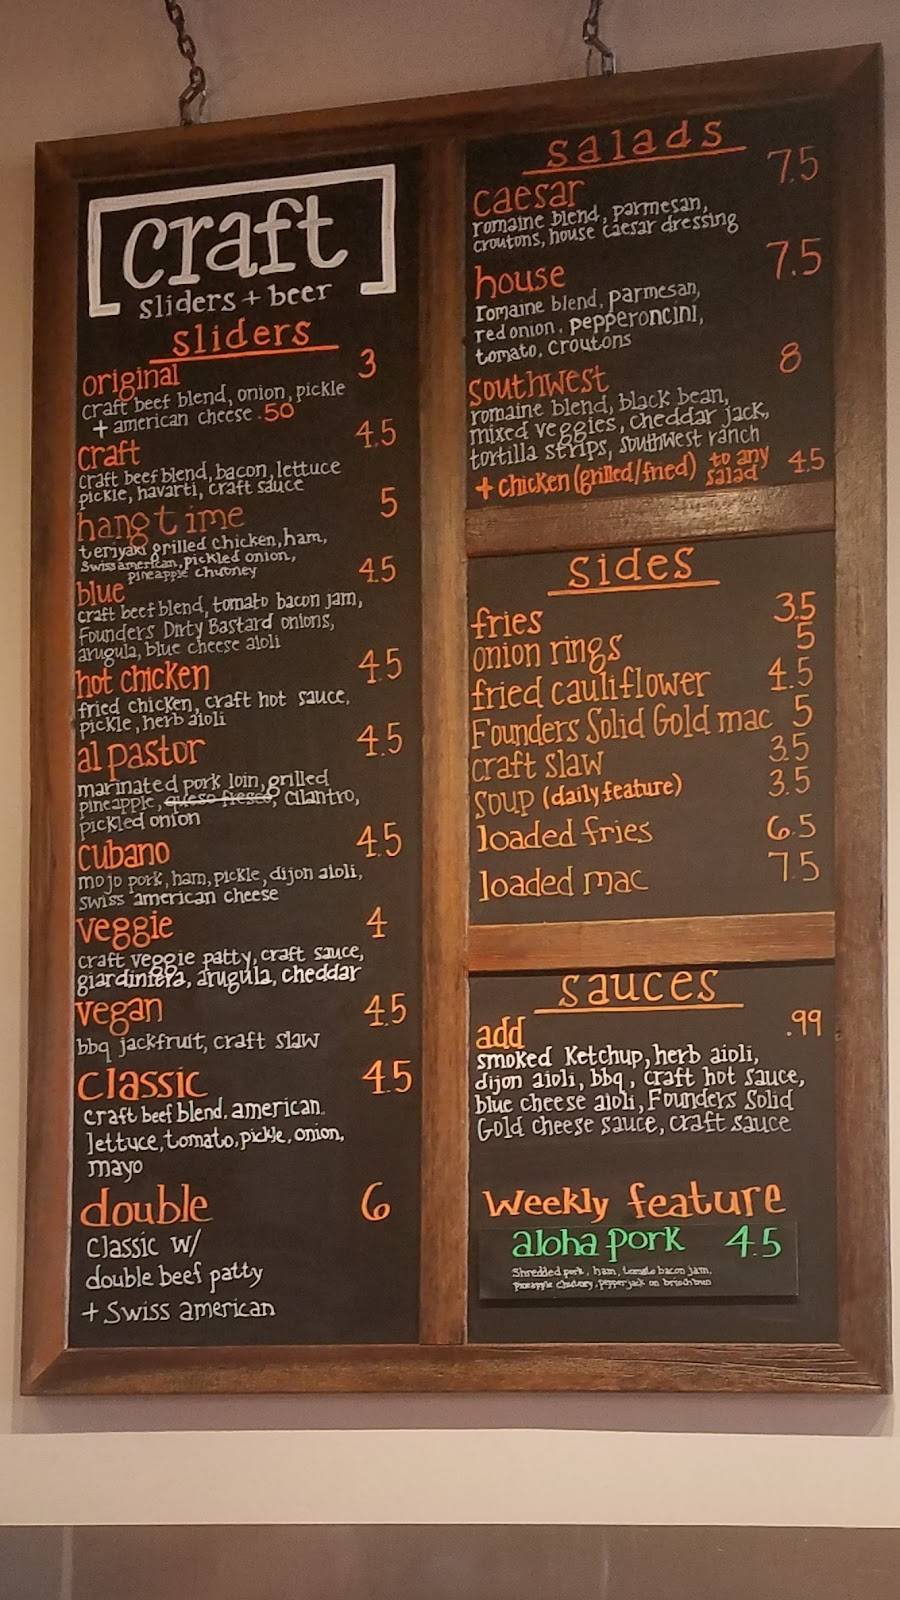 craft
sliders + beer
sliders
original 3
craft beef blend, onion, pickle
+ american cheese .50
craft 4.5
craft beef blend, bacon, lettuce
pickle, havarti, craft sauce
hang time 5
teriyaki grilled chicken, ham,
swiss american, pickled onion,
pineapple chutney
blue 4.5
craft beef blend, tomato bacon jam,
Founders Dirty Bastard onions,
arugula, blue cheese aioli
hot chicken 4.5
fried chicken, craft hot sauce,
pickle, herb aioli
al pastor 4.5
marinated pork loin, grilled
pineapple, queso fresco, cilantro,
pickled onion
cubano 4.5
mojo pork, ham, pickle, dijon aioli,
swiss american cheese
veggie 4
craft veggie patty, craft sauce,
giardiniera, arugula, cheddar
vegan 4.5
bbq jackfruit, craft slaw
classic 4.5
craft beef blend, american
lettuce, tomato, pickle, onion,
mayo
double 6
classic w/
double beef patty
+ swiss american
salads
caesar 7.5
romaine blend, parmesan,
croutons, house caesar dressing
house 7.5
romaine blend, parmesan,
red onion, pepperoncini,
tomato, croutons
southwest 8
romaine blend, black bean,
mixed veggies, cheddar jack,
tortilla strips, southwest ranch
+ chicken (grilled/fried) to any salad 4.5
sides
fries 3.5
onion rings 5
fried cauliflower 4.5
Founders Solid Gold mac 5
craft slaw 3.5
soup (daily feature) 3.5
loaded fries 6.5
loaded mac 7.5
sauces
add .99
smoked ketchup, herb aioli,
dijon aioli, bbq, craft hot sauce,
blue cheese aioli, Founders Solid
Gold cheese sauce, craft sauce
Weekly feature
aloha pork 4.5
Shredded pork, ham, tomato bacon jam,
Pineapple chutney, pepper jack on brioch bun